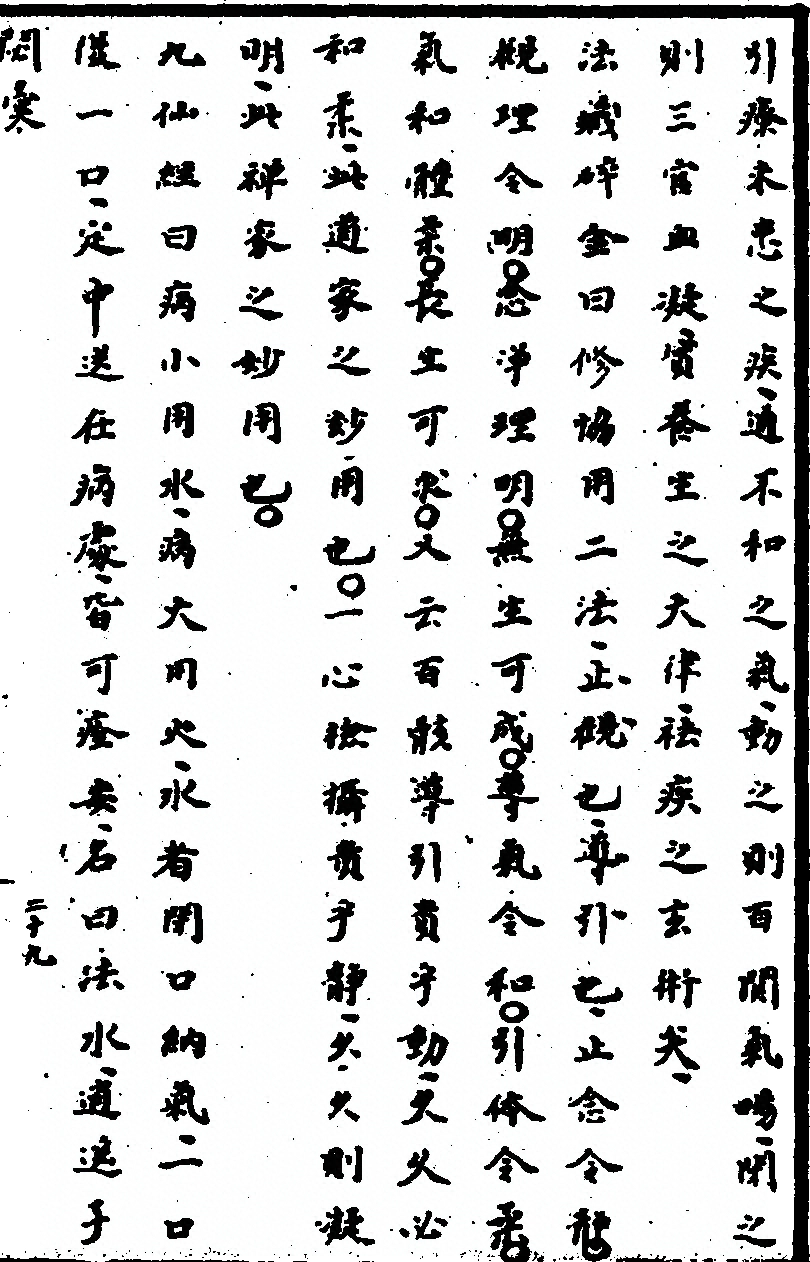 引療未患之疾通不和之氣動之則百關氣暢閉之
則三宮血凝實養生之大律祛疾之玄術矣
法藏碎金曰修協用二法止觀也導引也止念令靜
觀理令明念淨理明無生可成導氣令和引体令柔
氣和體柔長生可求又云百骸導引貴乎動久久必
和柔此道家之妙用也一心檢攝貴乎靜久久則凝
明此禅家之妙用也
九仙經曰病小用水病大用火水者閉口納氣二口
從一口定中送在病處皆可痊矣名曰法水逍遙子
閉寒
二十九